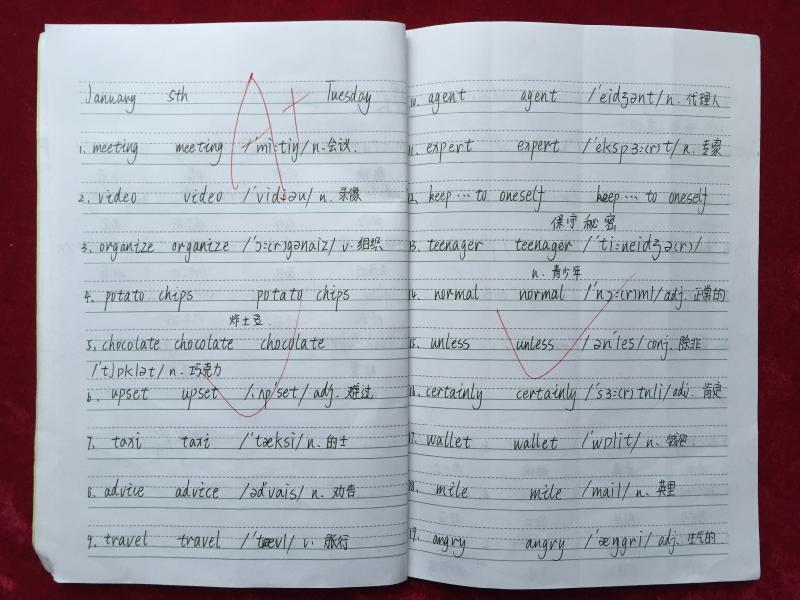 January 5th Tuesday
A+
1. meeting meeting /ˈmiːtiŋ/ n. 会议.
2. video video /ˈvidiəu/ n. 录像
3. organize organize /ˈɔː(r)gənaiz/ v. 组织
4. potato chips potato chips
炸土豆
5. chocolate chocolate chocolate
/ˈtʃɒklət/ n. 巧克力
6. upset upset /ˌʌpˈset/ adj. 难过
7. taxi taxi /ˈtæksi/ n. 的士
8. advice advice /ədˈvais/ n. 劝告
9. travel travel /ˈtrævl/ v. 旅行
10. agent agent /ˈeidʒənt/ n. 代理人
11. expert expert /ˈekspɜː(r)t/ n. 专家
12. keep … to oneself keep … to oneself
保守秘密
13. teenager teenager /ˈtiːneidʒə(r)/
n. 青少年
14. normal normal /ˈnɔː(r)ml/ adj. 正常的
15. unless unless /ənˈles/ conj. 除非
16. certainly certainly /ˈsɜː(r)tnli/ adv. 肯定
17. wallet wallet /ˈwɒlit/ n. 钱包
18. mile mile /mail/ n. 英里
19. angry angry /ˈæŋgri/ adj. 生气的